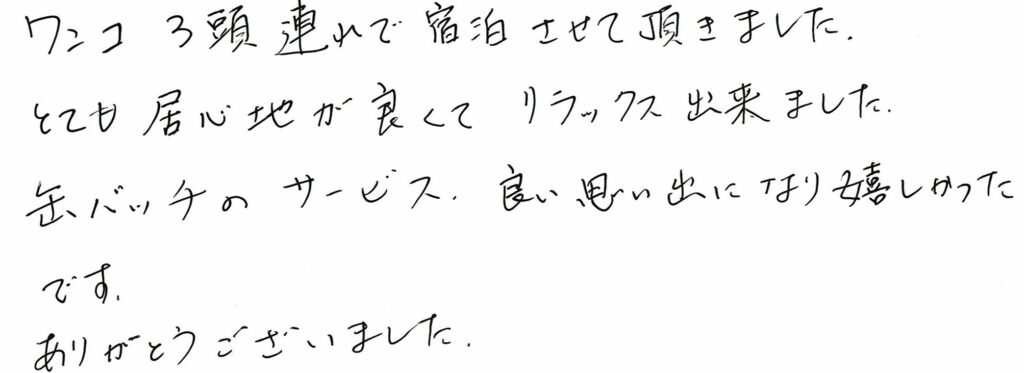 ワンコ 3頭 連れで 宿泊 させて 頂きました.
とても 居心地が 良くて リラックス 出来ました.
缶バッチの サービス. 良い思い出に なり 嬉しかった
です.
ありがとうございました.